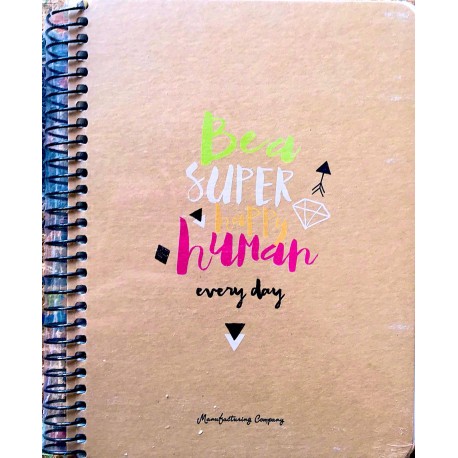 Be a
SUPER
happy
human
every day
Manufacturing Company